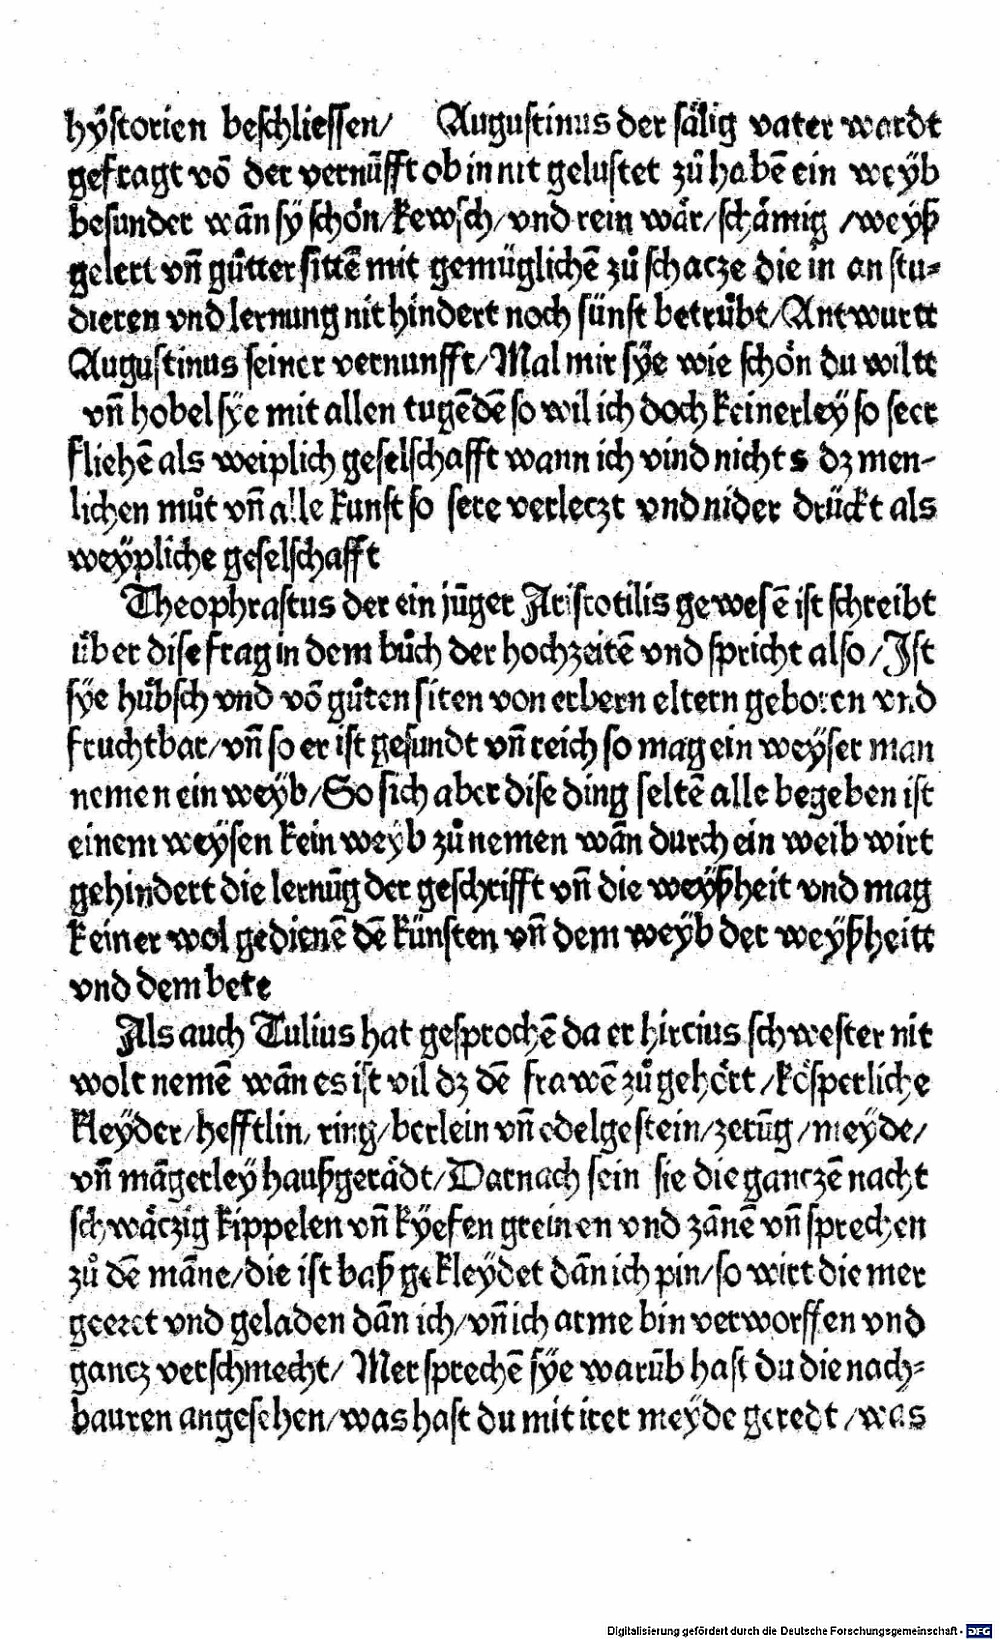 hÿstorien beschliessen/ Augustinus der sälig vater wardt
gefragt võ der vernũfft ob in nit gelustet zů habẽ ein weÿb
besunder wãn sy schön/kewsch/vnd rein wär/schämig /weyß
gelert vñ gůtter sittẽ mit gemüglichẽ zů schacze die in an stu⸗
dieren vnd lernung nit hindert noch sünst betrübt/Antwurtt
Augustinus seiner vernunfft/Mal mir sÿe wie schön du wiltt
vñ hobel sÿe mit allen tugẽdẽ so wil ich doch keinerleÿ so seer
fliehẽ als weiplich geselschafft wann ich vind nichts dz men⸗
lichen můt vñ alle kunst so sere verleczt vnd nider drückt als
weÿpliche geselschafft
Theophrastus der ein jũger Aristotilis gewesẽ ist schreibt
über dise frag in dem bůch der hochzeitẽ vnd spricht also/Ist
sÿe hübsch vnd võ gůten siten von erbern eltern geboren vnd
fruchtbar/vñ so er ist gesundt vñ reich so mag ein weÿser man
nemen ein weÿb/So sich aber dise ding seltẽ alle begeben ist
einem weÿsen kein weÿb zů nemen wãn durch ein weib wirt
gehindert die lernũg der geschrifft vñ die weÿßheit vnd mag
keiner wol gedienẽ dẽ künsten vñ dem weÿb der weÿßheitt
vnd dem bete
Als auch Tulius hat gesprochẽ da er hircius schwester nit
wolt nemẽ wãn es ist vil dz dẽ frawẽ zů gehört /kösperliche
kleÿder/hefftlin/ring/berlein vñ edelgestein/zerũg/meÿde/
vñ mãgerleÿ haußgerädt/Darnach sein sie die ganczẽ nacht
schwäczig kippelen vñ kÿefen greinen vnd zãnẽ vñ sprechen
zů dẽ mãne/die ist baß gekleÿdet dãn ich pin/so wirt die mer
geeret vnd geladen dãn ich/vñ ich arme bin verworffen vnd
gancz verschmecht/ Mer sprechẽ sÿe warũb hast du die nach⸗
bauren angesehen/was hast du mit irer meÿde geredt /was
Digitalisierung gefördert durch die Deutsche Forschungsgemeinschaft - DFG